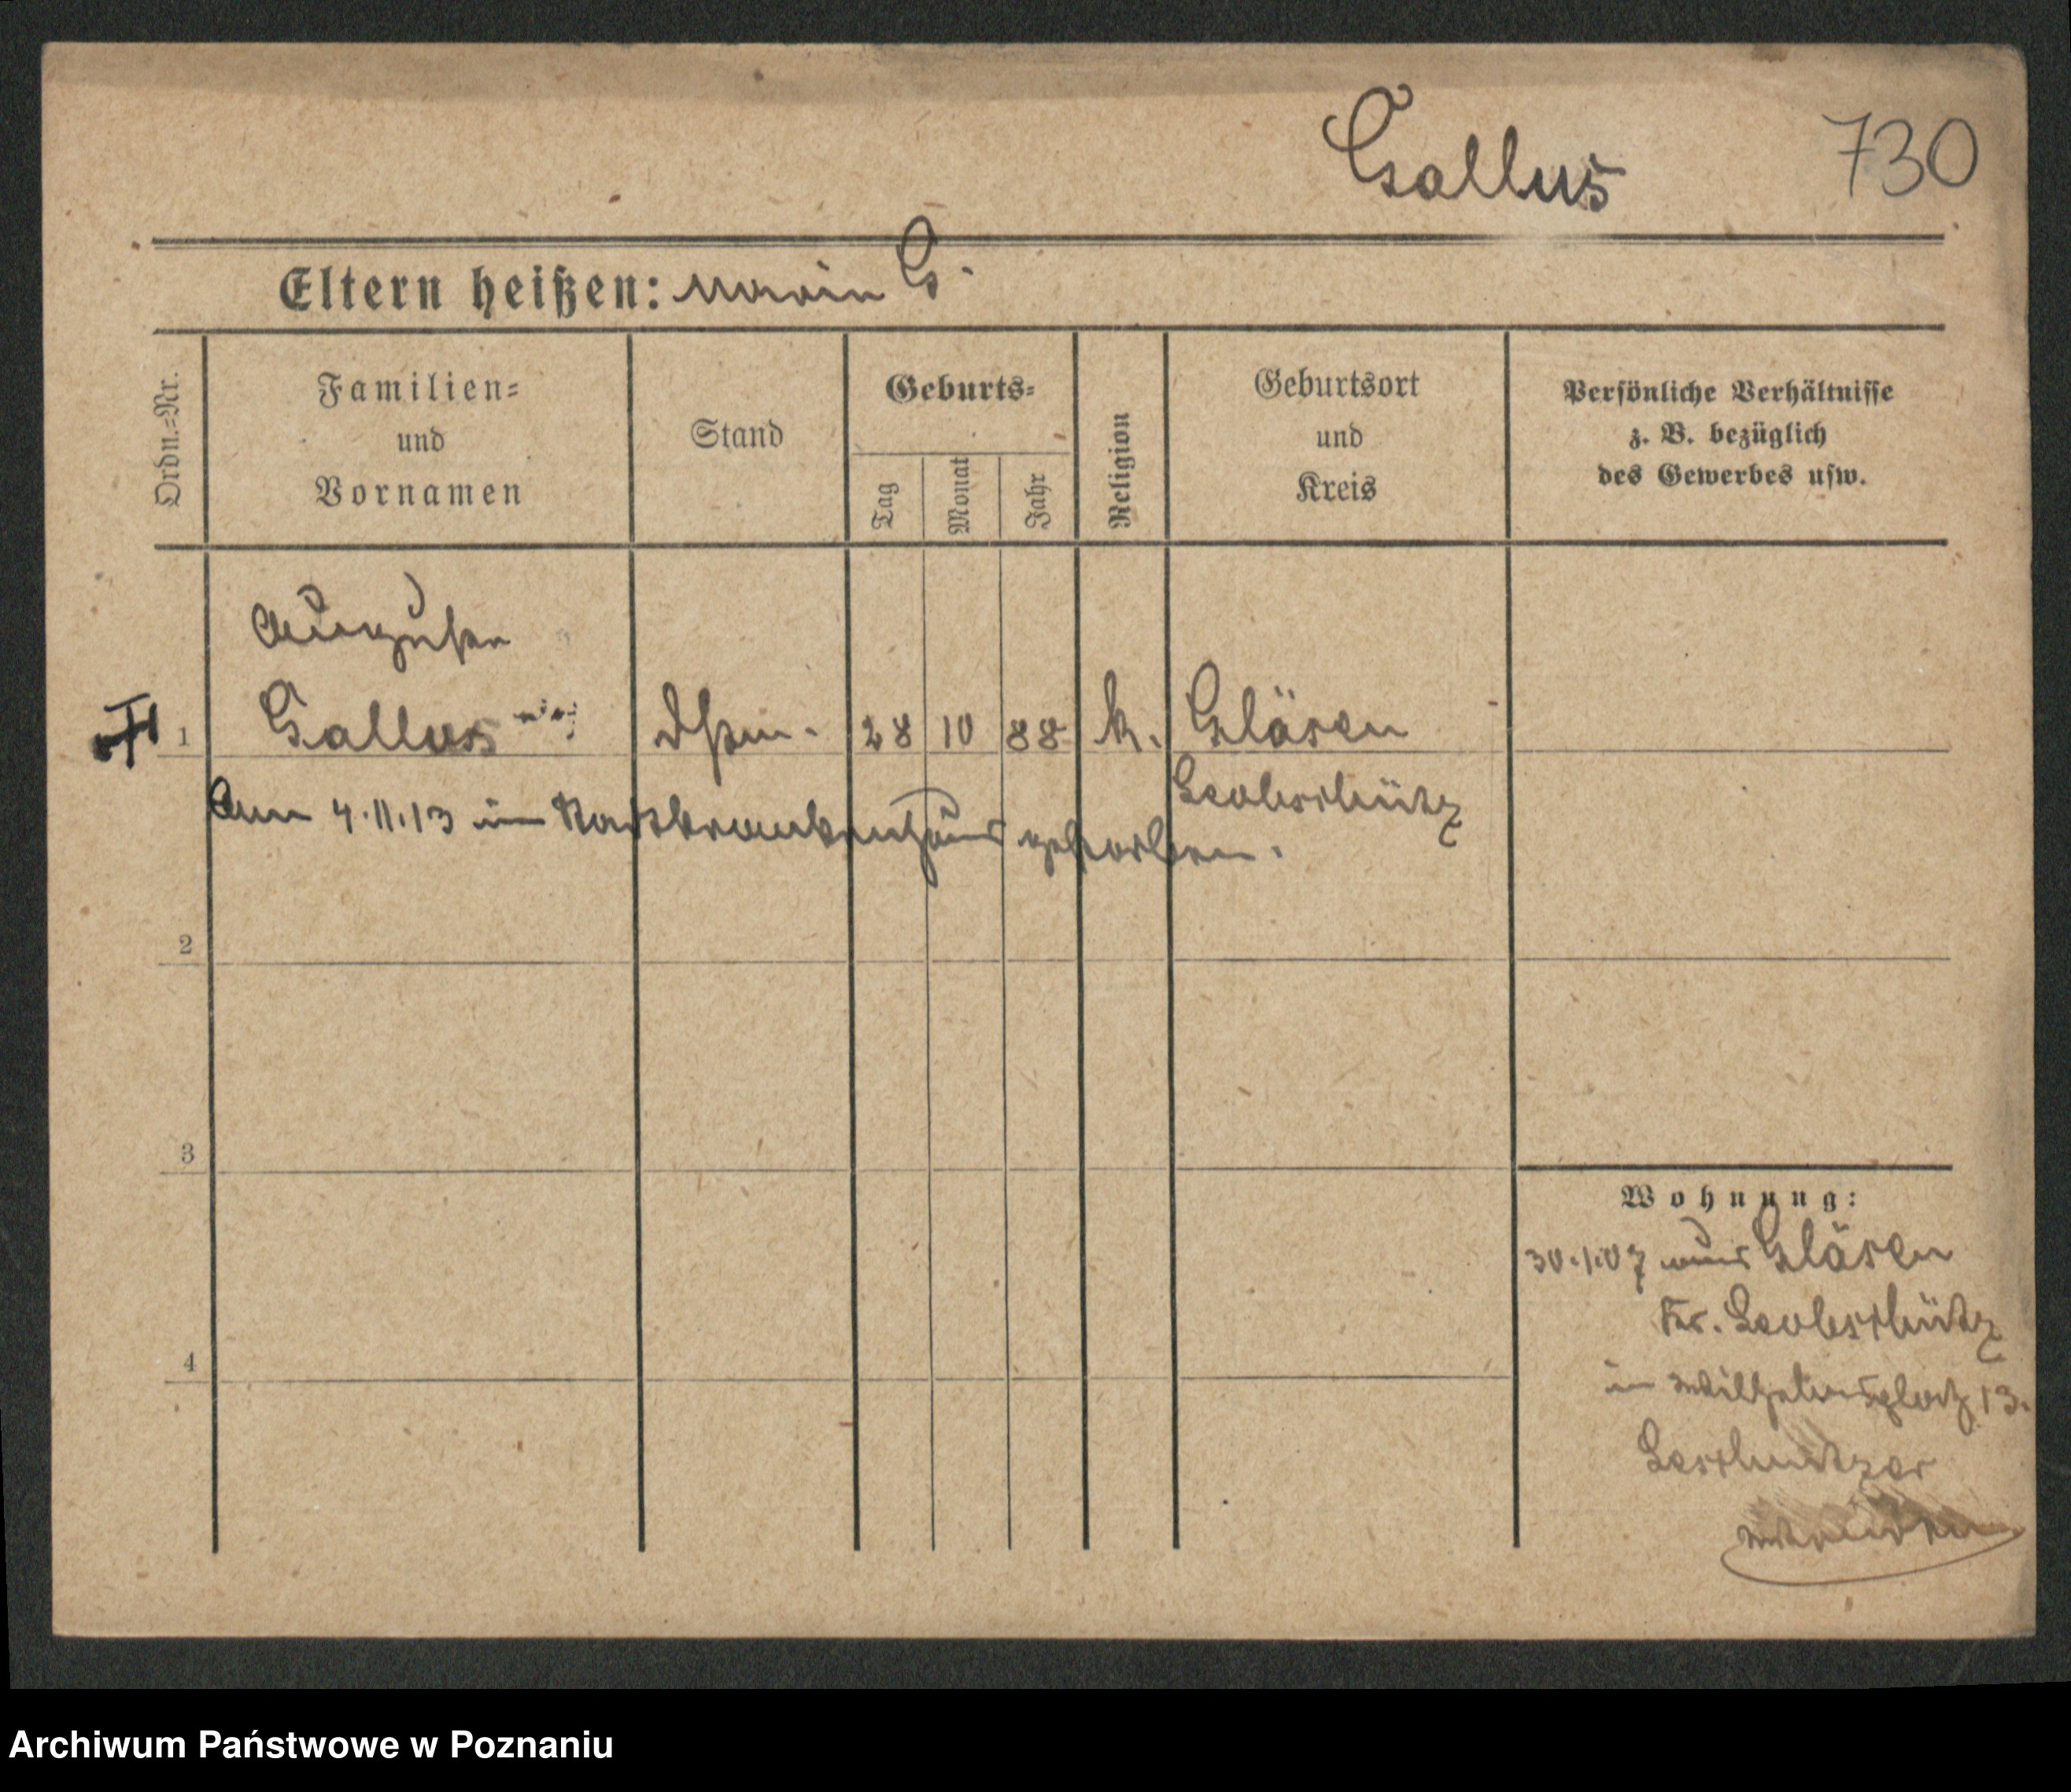 Gallus 730
Eltern heißen: Maria G.
Ordn.=Nr.
Familien=
und
Vornamen
Stand
Geburts=
Tag
Monat
Jahr
Religion
Geburtsort
und
Kreis
Persönliche Verhältnisse
z. B. bezüglich
des Gewerbes usw.
1 Gallus 28 10 88 k. Gläsen
Leobschütz
Am 4.11.13 im Stadtkrankenhaus gestorben.
2
3
4
Wohnung:
30.1.07 aus Gläsen
Kr. Leobschütz
in Wilhelmsplatz 13.